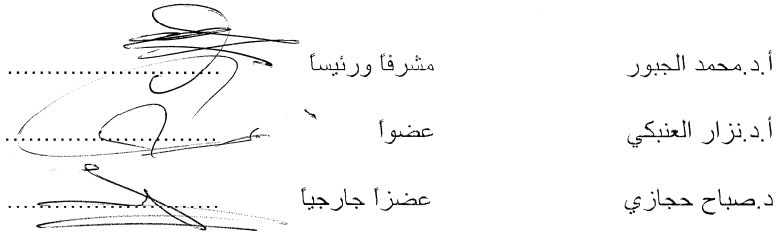 أ.د.محمد الجبور مشرفاً ورئيساً ........................
أ.د.نزار العنبكي عضواً ........................
د.صباح حجازي عضزاً جارجياً ........................